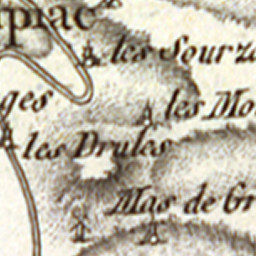 piac
les Sourz
ges
les Mo
les Drules
Mas de Gr